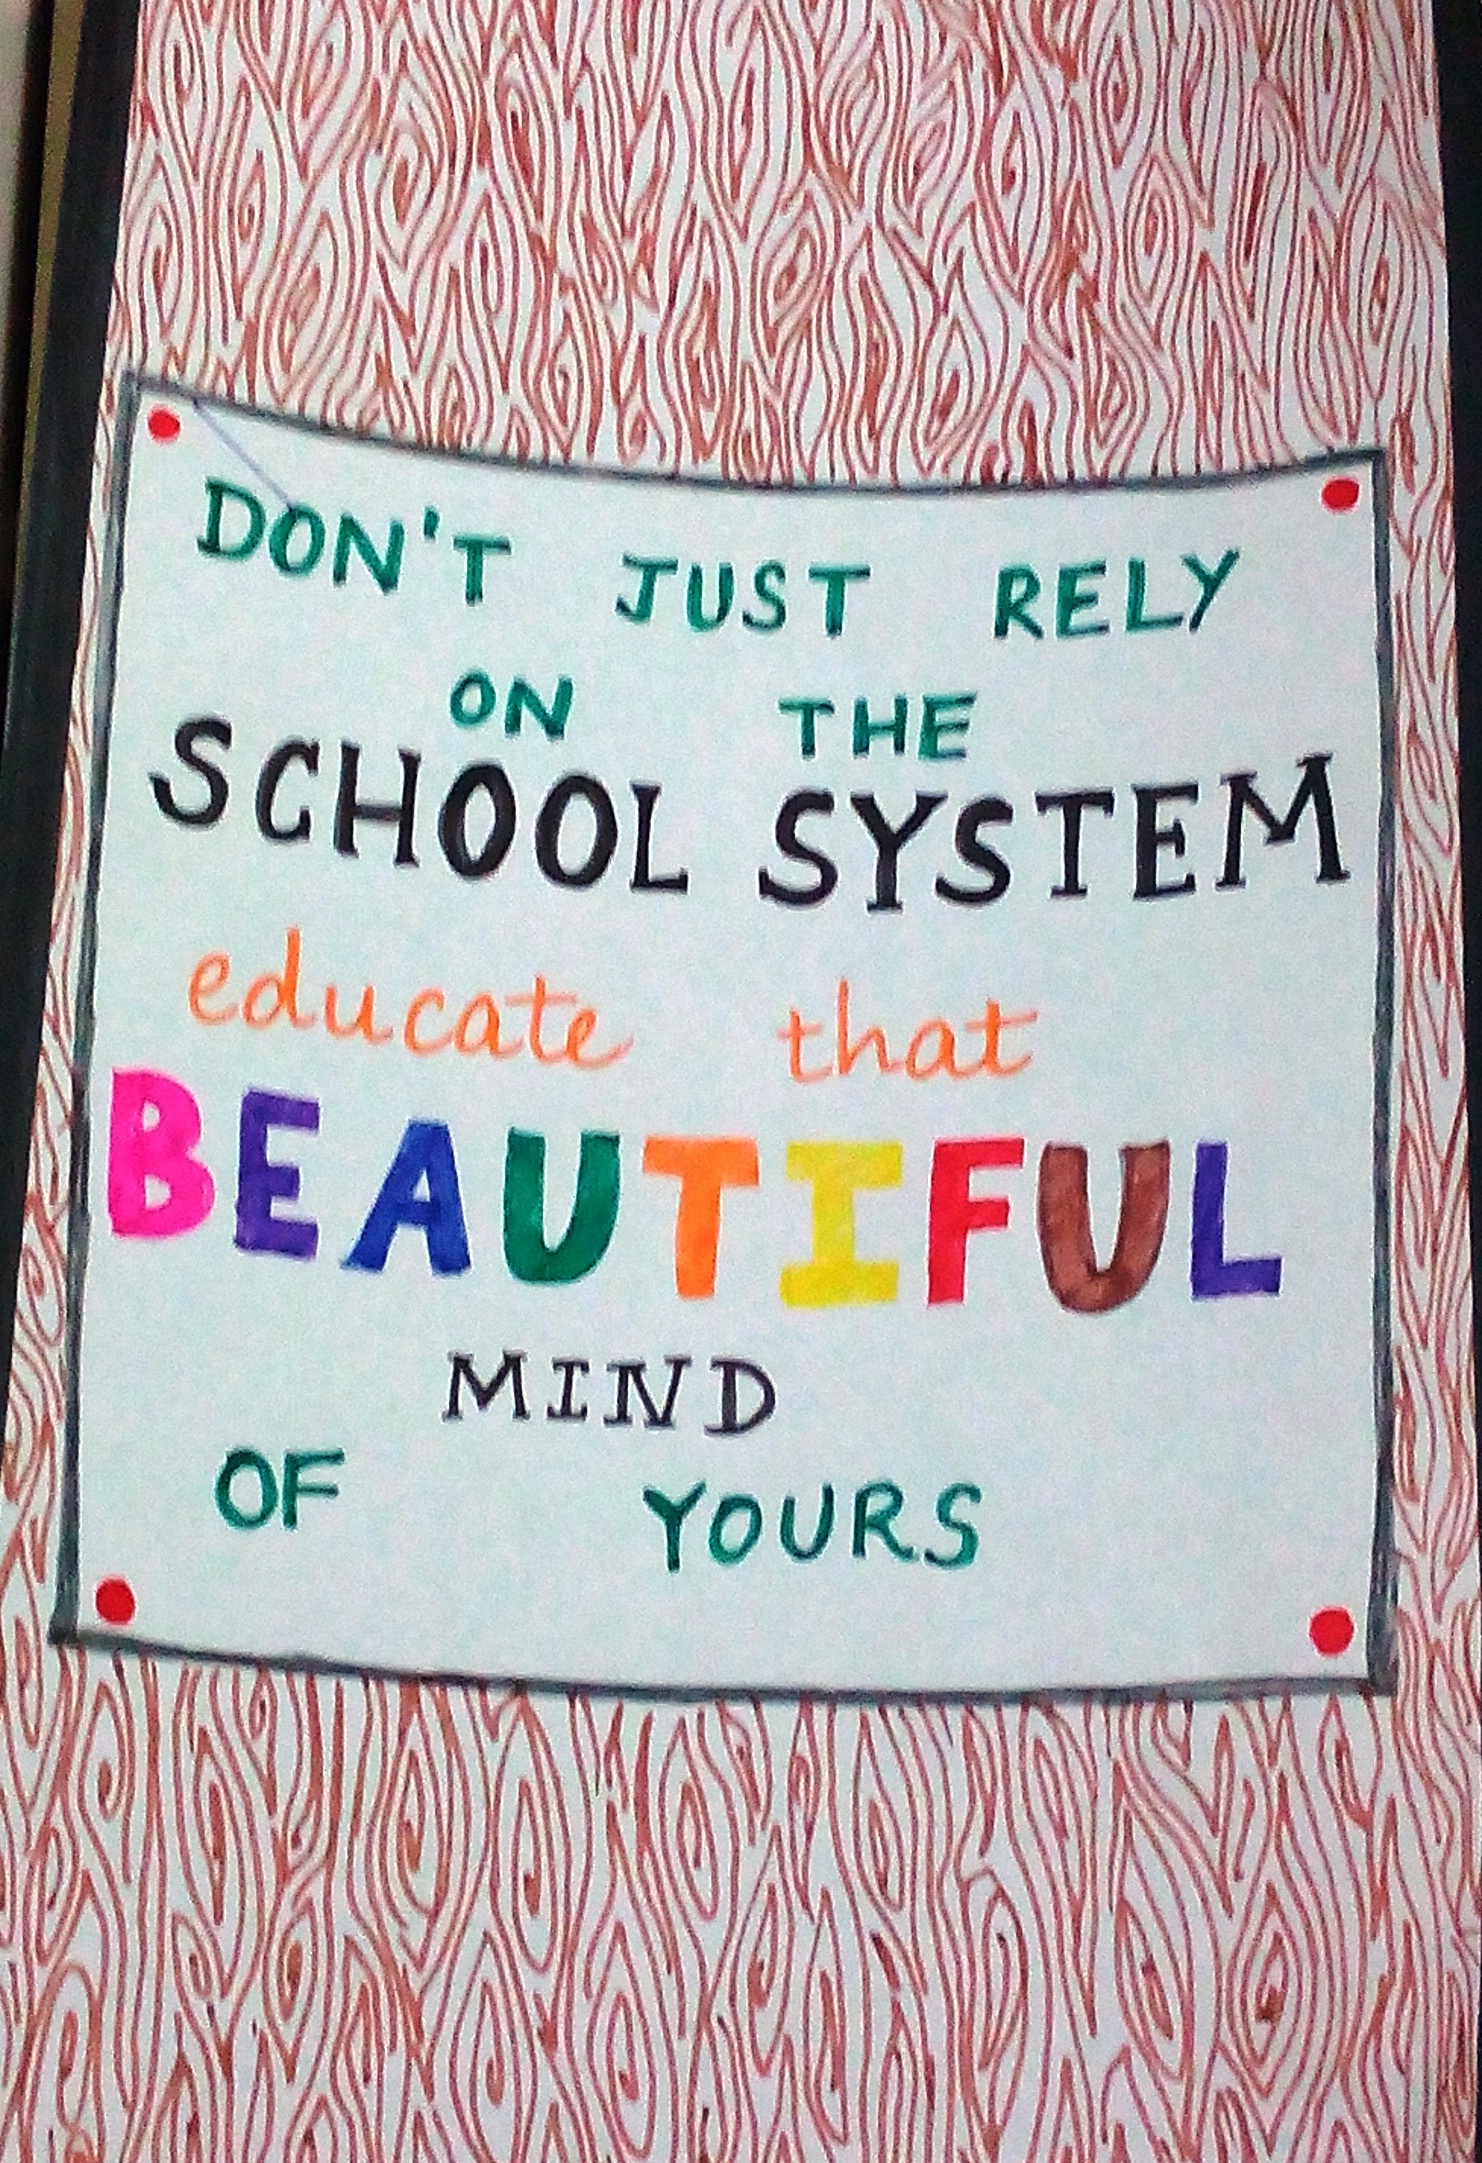 DON'T JUST RELY
ON THE
SCHOOL SYSTEM
educate that
BEAUTIFUL
MIND
OF YOURS